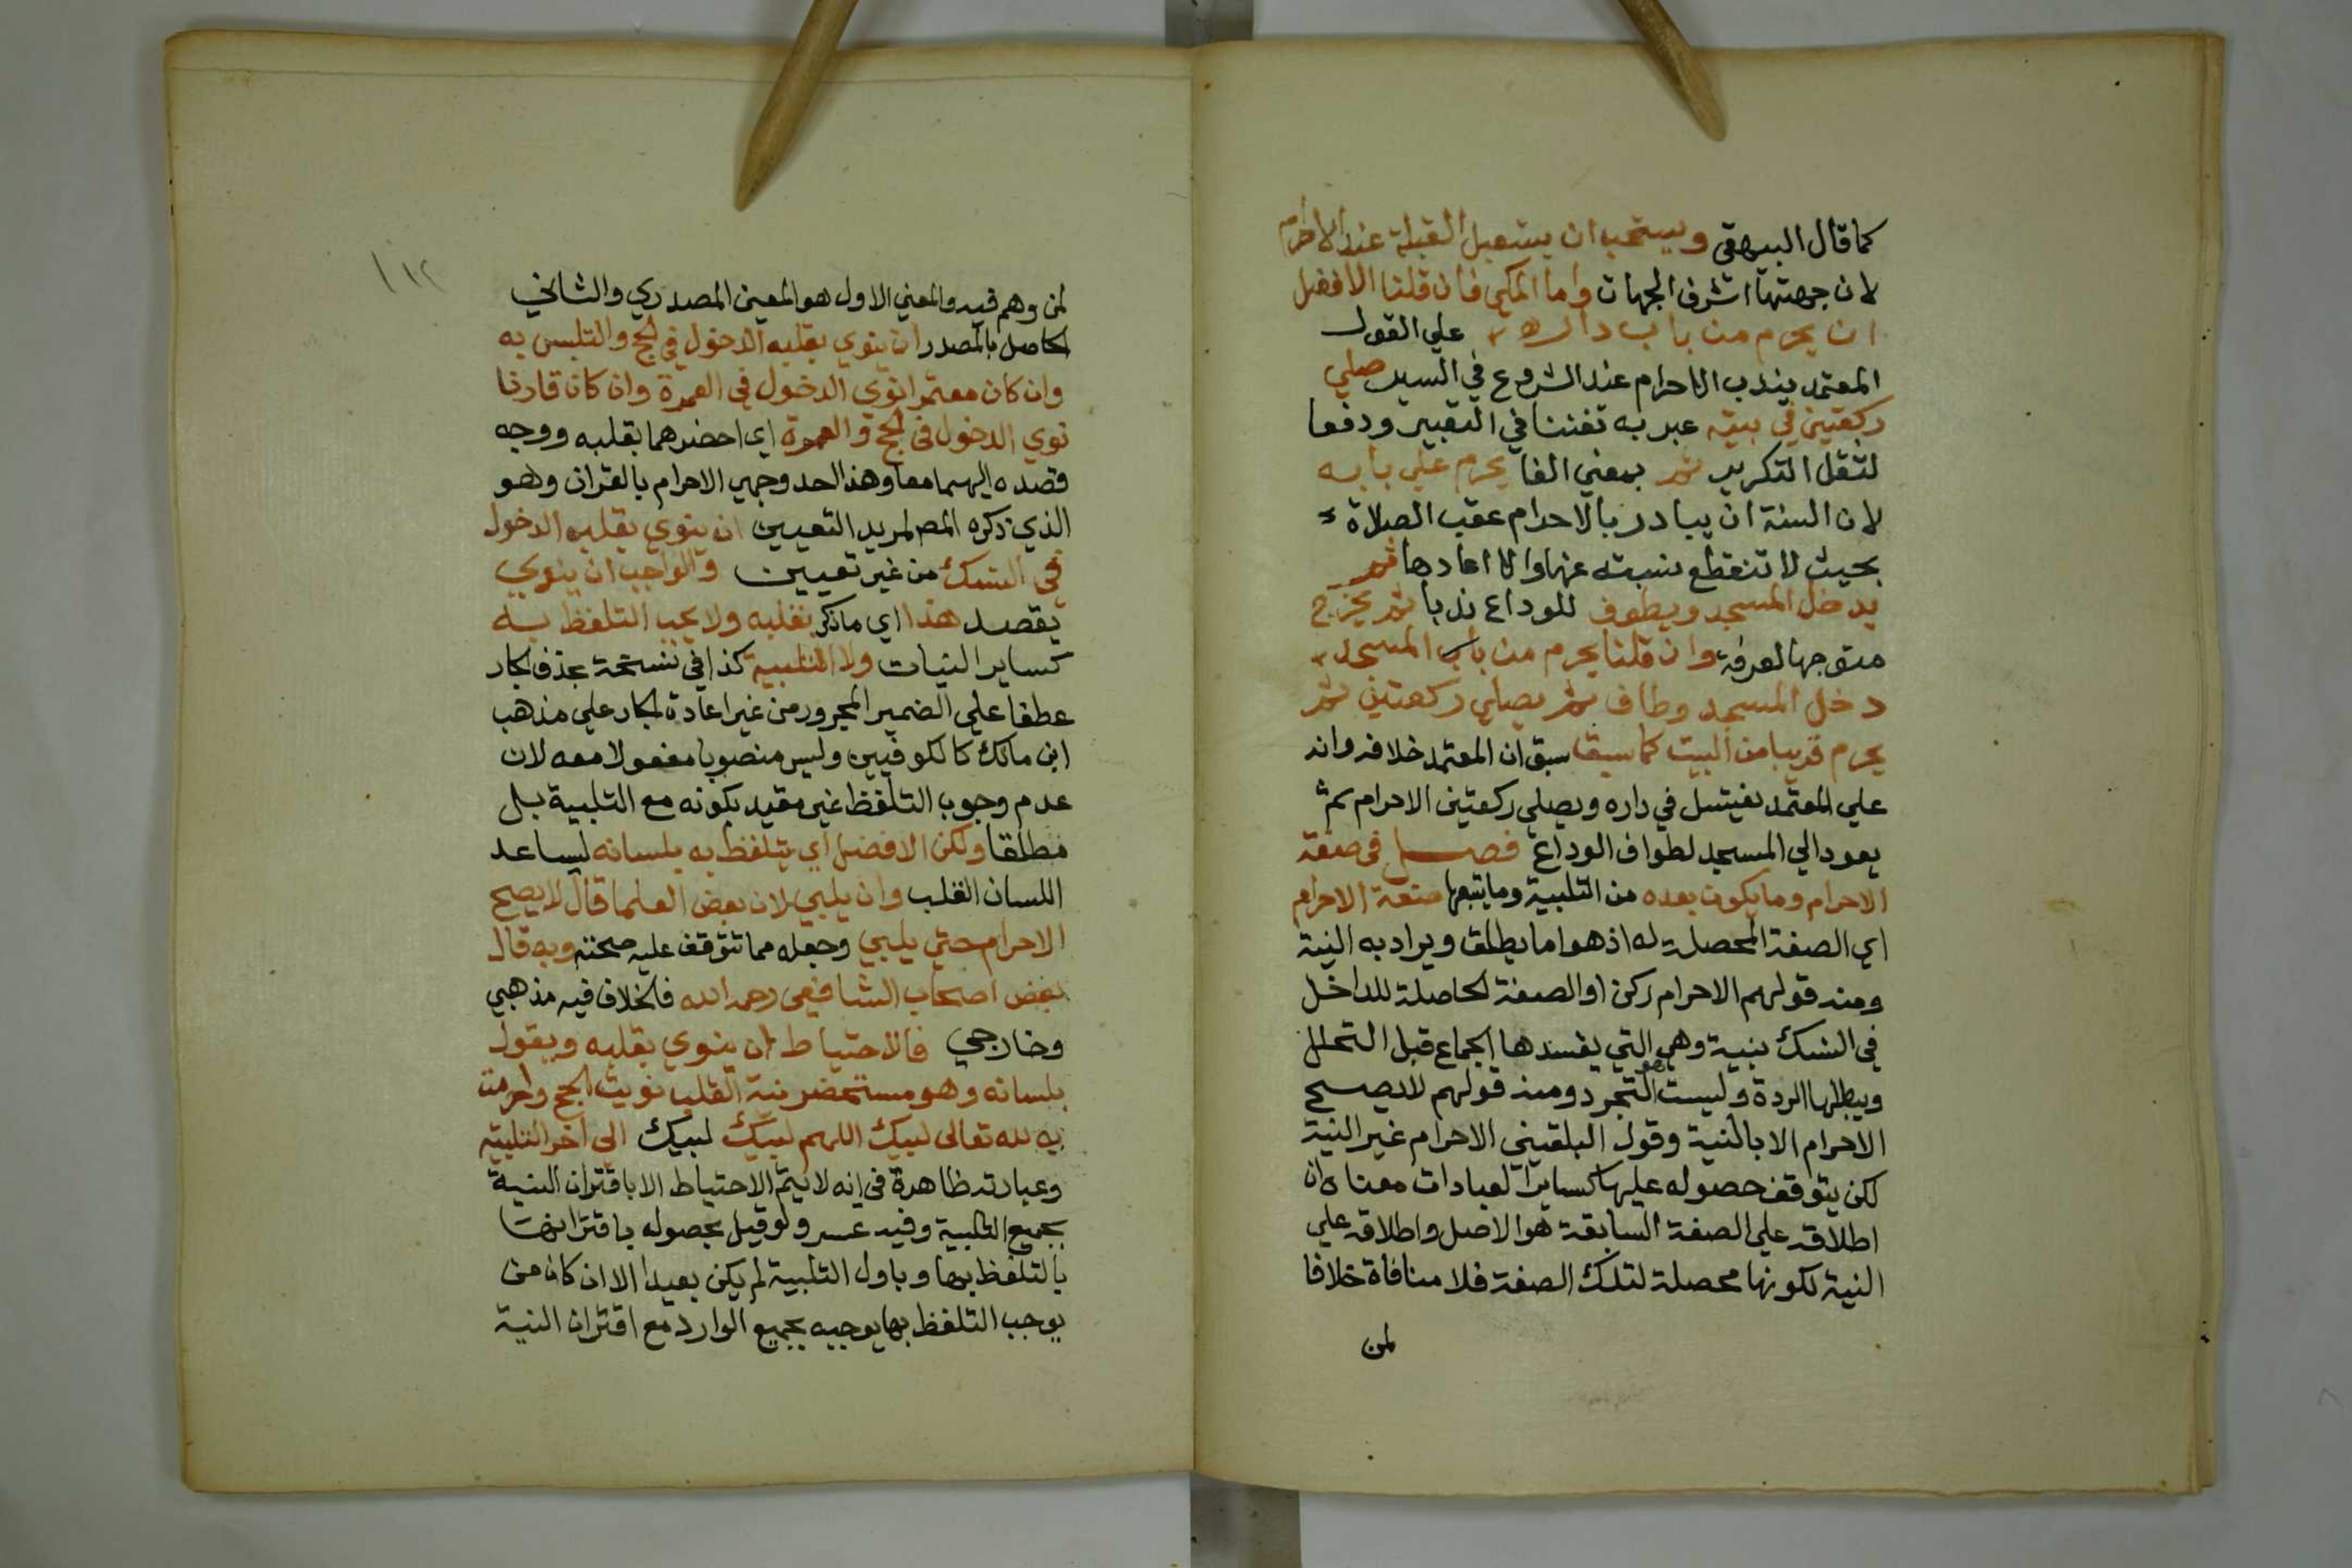 كما قال البيهقي ويستحب ان يستقبل القبلة عند الاحرام
لان جهتها اشرف الجهات واما المكي فان قلنا الافضل
ان يحرم من باب داره علي القول
المعتمد يندب الاحرام عند الشروع في السير صلي
ركعتين في بيته عبر به تفننا في التعبير ودفعا
لثقل التكرير ثم بمعني الفا يحرم علي بابه
لان السنة ان يبادر بالاحرام عقب الصلاة
بحيث لا تنقطع نسبته عنها والا اعادها ثم
يدخل المسجد ويطوف للوداع ندبا ثم يخرج
متوجها لعرفة وان قلنا يحرم من باب المسجد
دخل المسجد وطاف ثم يصلي ركعتين ثم
يحرم قريبا من البيت كما سبقا سبق ان المعتمد خلافه وانه
علي المعتمد يغتسل في داره ويصلي ركعتين الاحرام ثم
يعود الي المسجد لطواف الوداع فصل في صفة
الاحرام وما يكون بعده من التلبية وما يتبعها صفة الاحرام
اي الصفة المحصلة له اذ هو اما يطلق ويراد به النية
ومنه قولهم الاحرام ركن او الصفة الحاصلة للداخل
في النسك بنيية وهي التي يفسدها الجماع قبل التحلل
ويبطلها الردة وليست هو التجرد ومنه قولهم لا يصح
الاحرام الا بالنية وقول البلقيني الاحرام غير النية
لكن يتوقف حصوله عليها كساير العبادات معناه ان
اطلاقه علي الصفة السابقة هو الاصل واطلاقه علي
النية لكونها محصلة لتلك الصفة فلا منافاة خلافا
لمن
١١٢
لمن وهم فيه والمعني الاول هو المعين المصدري والثاني
الحاصل بالمصدر ان ينوي بقلبه الدخول في الحج والتلبس به
وان كان معتمرا نوي الدخول في العمرة وان كان قارنا
نوي الدخول في الحج والعمرة اي احضرهما بقلبه ووجه
قصده اليهما معا وهذا احد وجهي الاحرام بالقران وهو
الذي ذكره المص لمريد التعيين ان ينوي بقلبه الدخول
في النسك من غير تعيين والواجب ان ينوي
يقصد هذا اي ما ذكر بقلبه ولا يجب التلفظ به
كساير النيات ولا التلبية كذا في نسخة بحذف الجار
عطفا علي الضمير المجرور من غير اعادة الجار علي مذهب
ابن مالك كالكوفيين وليس منصوبا مفعولا معه لان
عدم وجوب التلفظ غير مقيد بكونه مع التلبية بل
مطلقا ولكن الافضل اي يتلفظ به بلسانه ليساعد
اللسان القلب وان يلبي لان بعض العلما قال لا يصح
الاحرام حتي يلبي وجعله مما تتوقف عليه صحته وبه قال
بعض اصحاب الشافعي رحمه الله فالخلاف فيه مذهبي
وخارجي فالاحتياط ان ينوي بقلبه ويقول
بلسانه وهو مستحضر نية القلب نويت الحج واحرمت
به لله تعالى لبيك اللهم لبيك لبيك الى آخر التلبية
وعبارته ظاهرة في انه لا يتم الاحتياط الا باقتران النية
بجميع التلبية وفيه عسر ولو قيل بحصوله باقترانها
بالتلفظ بها وباول التلبية لم يكن بعيدا الا ان كان من
يوجب التلفظ بها يوجبه بجميع الوارد مع اقتران النية